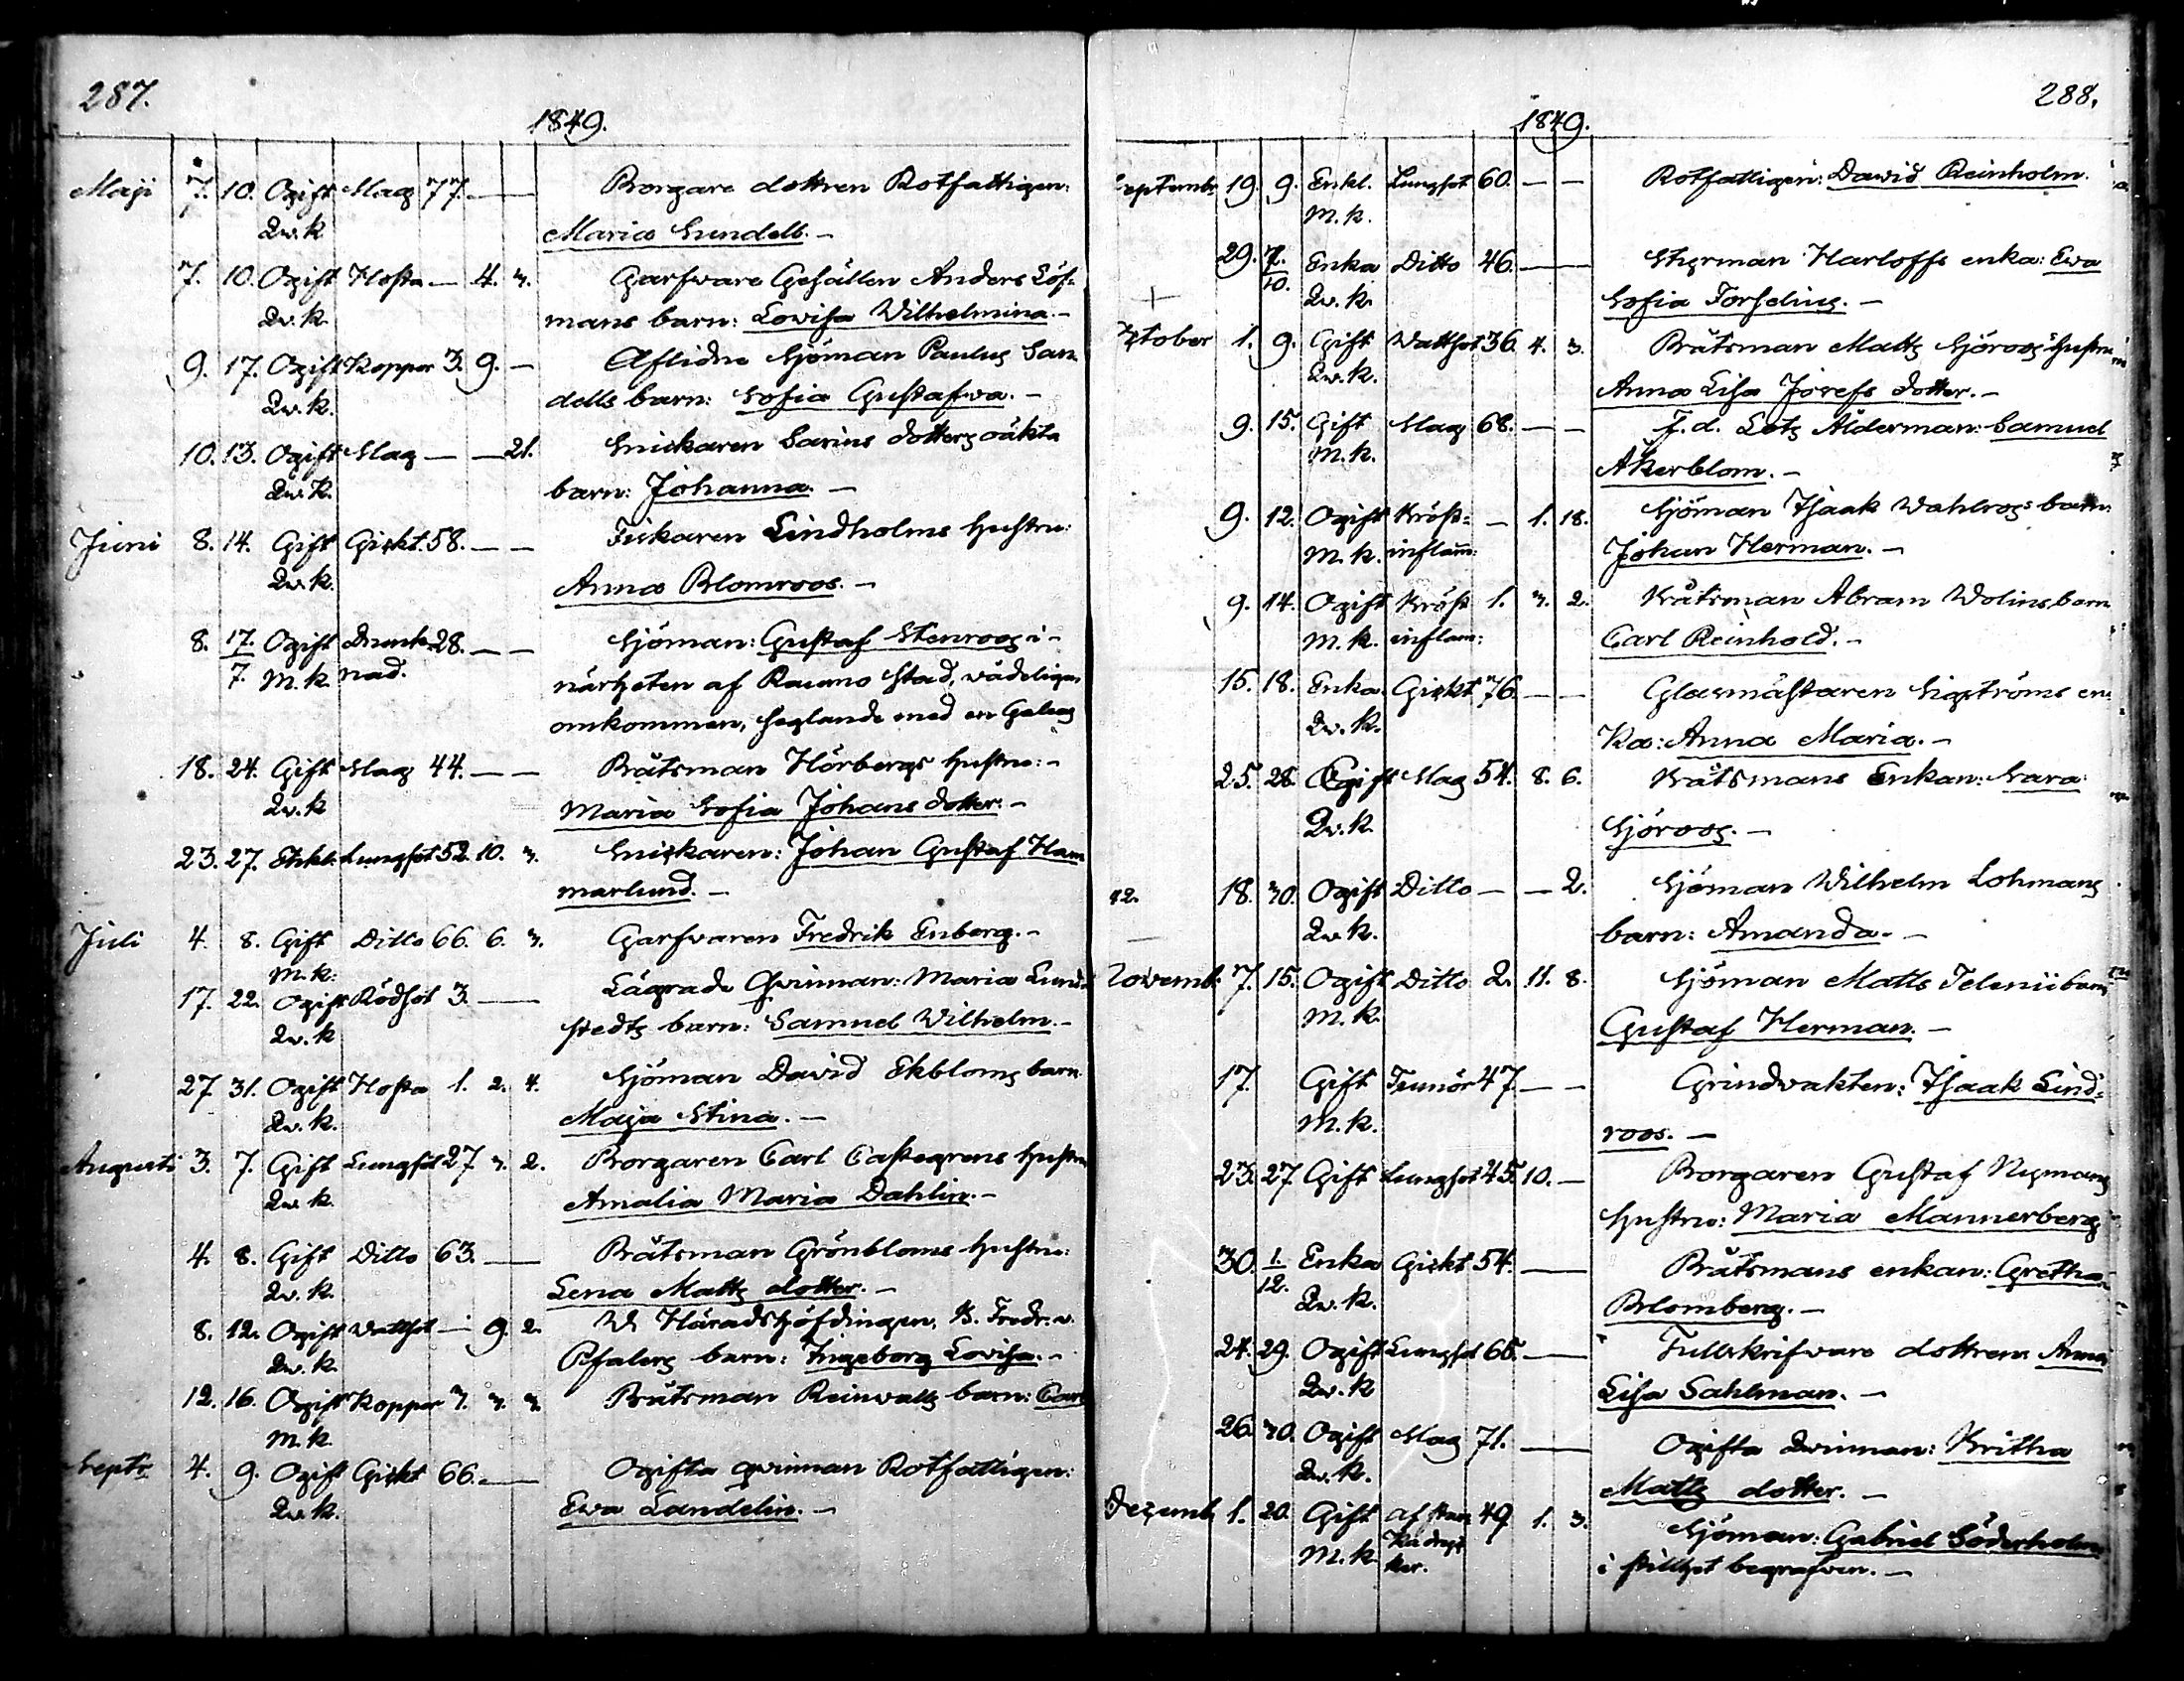 287.
1849.
Maji 7. 10. Ogift Slag 77. — Borgare dottren Rotfattigen:
Qv. k. Maria Sundell. —
7. 10. Ogift Hosta — 4. 3. Garfvare Gesällen Anders Löf-
Qv. k. mans barn: Lovisa Wilhelmina. —
9. 17. Ogift Koppor 3. 9. — Aflidne Sjöman Paulus San
Qv. k. dells barn: Sofia Gustafva. —
10. 13. Ogift Slag — — 21. Snickaren Sarins dotters oäkta
Qv. k. barn: Johanna. —
Juni 8. 14. Gift Gickt. 58. — — Fiskaren Lindholms hustru:
Qv. k. Anna Blomroos. —
8. 17. Ogift Drunk- 28. — — Sjöman: Gustaf Stenroos i
7. M. k. nad. närheten af Raumo stad, vådeligen
omkommen, seglande med en Galeas
18. 24. Gift Slag 44. — — Båtsman Hörbergs hustru: —
Qv. k. Maria Sofia Johans dotter. —
23. 27. Enkl. Lungsot 52. 10. 3. Snickaren: Johan Gustaf Ham
marlund. —
Juli 4. 8. Gift Ditto 66. 6. 3. Garfvaren Fredrik Enberg. —
M. k.
17. 22. Ogift Rödsot 3. — Lägrade Qvinnan: Maria Lund-
Qv. k. stedts barn: Samuel Wilhelm. —
27 31. Ogift Hosta 1. 2. 4. Sjöman David Ekbloms barn
Qv. k. Maja Stina. —
Augusti 3. 7. Gift Lungsot 27 3. 2. Borgaren Carl Castegrens hustru
Qv. k. Amalia Maria Dahlin. —
4. 8. Gift Ditto 63. — Båtsman Grönbloms hustru:
Qv. k. Lena Matts dotter. —
8. 12. Ogift Wattsot — 9. 2. W Häradshöfdingen, B. Fredr. v.
Qv. k. Pfalers barn: Ingeborg Lovisa. —
12. 16. Ogift Koppor 3. 3. 3. Båtsman Reinvalls barn: Carl
M. k.
Septr. 4. 9. Ogift Gickt 66. — Ogifta qvinnan Rotfattigen:
Qv. k. Ewa Landelin. —
288.
1849.
Septemb. 19. 9. Enkl. Lungsot 60. — — Rotfattigen: David Reinholm.
M. k.
29. 7. Enka Ditto 46. — Styrman Harloffs enka: Ewa
10. Qv. k. Sofia Forselius. —
October 1. 9. Gift Wattsot 36. 4. 3. Båtsman Matts Sjöroos hustru
Qv. k. Anna Lisa Josefs dotter. —
9. 15. Gift Slag 68. — — F. d. Lots Ålderman: Samuel
M. k. Åkerblom. —
9. 12. Ogift Bröst- — 1. 18. Sjöman Isaak Wahlroos barn:
M. k. inflam: Johan Herman. —
9. 14. Ogift Bröst 1. 3. 2. Båtsman Abram Wolins barn
M. k. inflam: Carl Reinhold. —
15. 18. Enka. Gickt 76. — — Glasmästaren Sigströms en-
Qv. k. ka: Anna Maria. —
25. 28. Ogift Slag 54. 8. 6. Båtsmans Enkan: Sara
Qv. k. Sjöroos. —
12. 18. 30. Ogift Ditto — — 2. Sjöman Wilhelm Lohmans
Qv. k. barn: Amanda. —
Novemb. 7. 15. Ogift Ditto 2. 11. 8. Sjöman Matts Telenii barn
M. k. Gustaf Herman. —
17. Gift Tumör 47. — — Grindvakten: Isaak Lind-
M. k. roos. —
23. 27 Gift Lungsot 45. 10. — Borgaren Gustaf Nymans
hustru: Maria Mannerberg
30. 1. Enka Gickt 54. — Båtsmans enkan: Gretha
12. Qv. k. Blomberg. —
24. 29. Ogift Lungsot 65. — Tullskrifvare dottren Anna
Qv. k. Lisa Sahlman. —
26. 30. Ogift Slag 71. — Ogifta Qvinnan: Britha
Qv. k. Matts dotter. —
Decemb. 1. 20. Gift af star 49 1. 3. Sjöman: Gabriel Söderholm
M. k. ka dryc ker. i stillhet begrafven. —